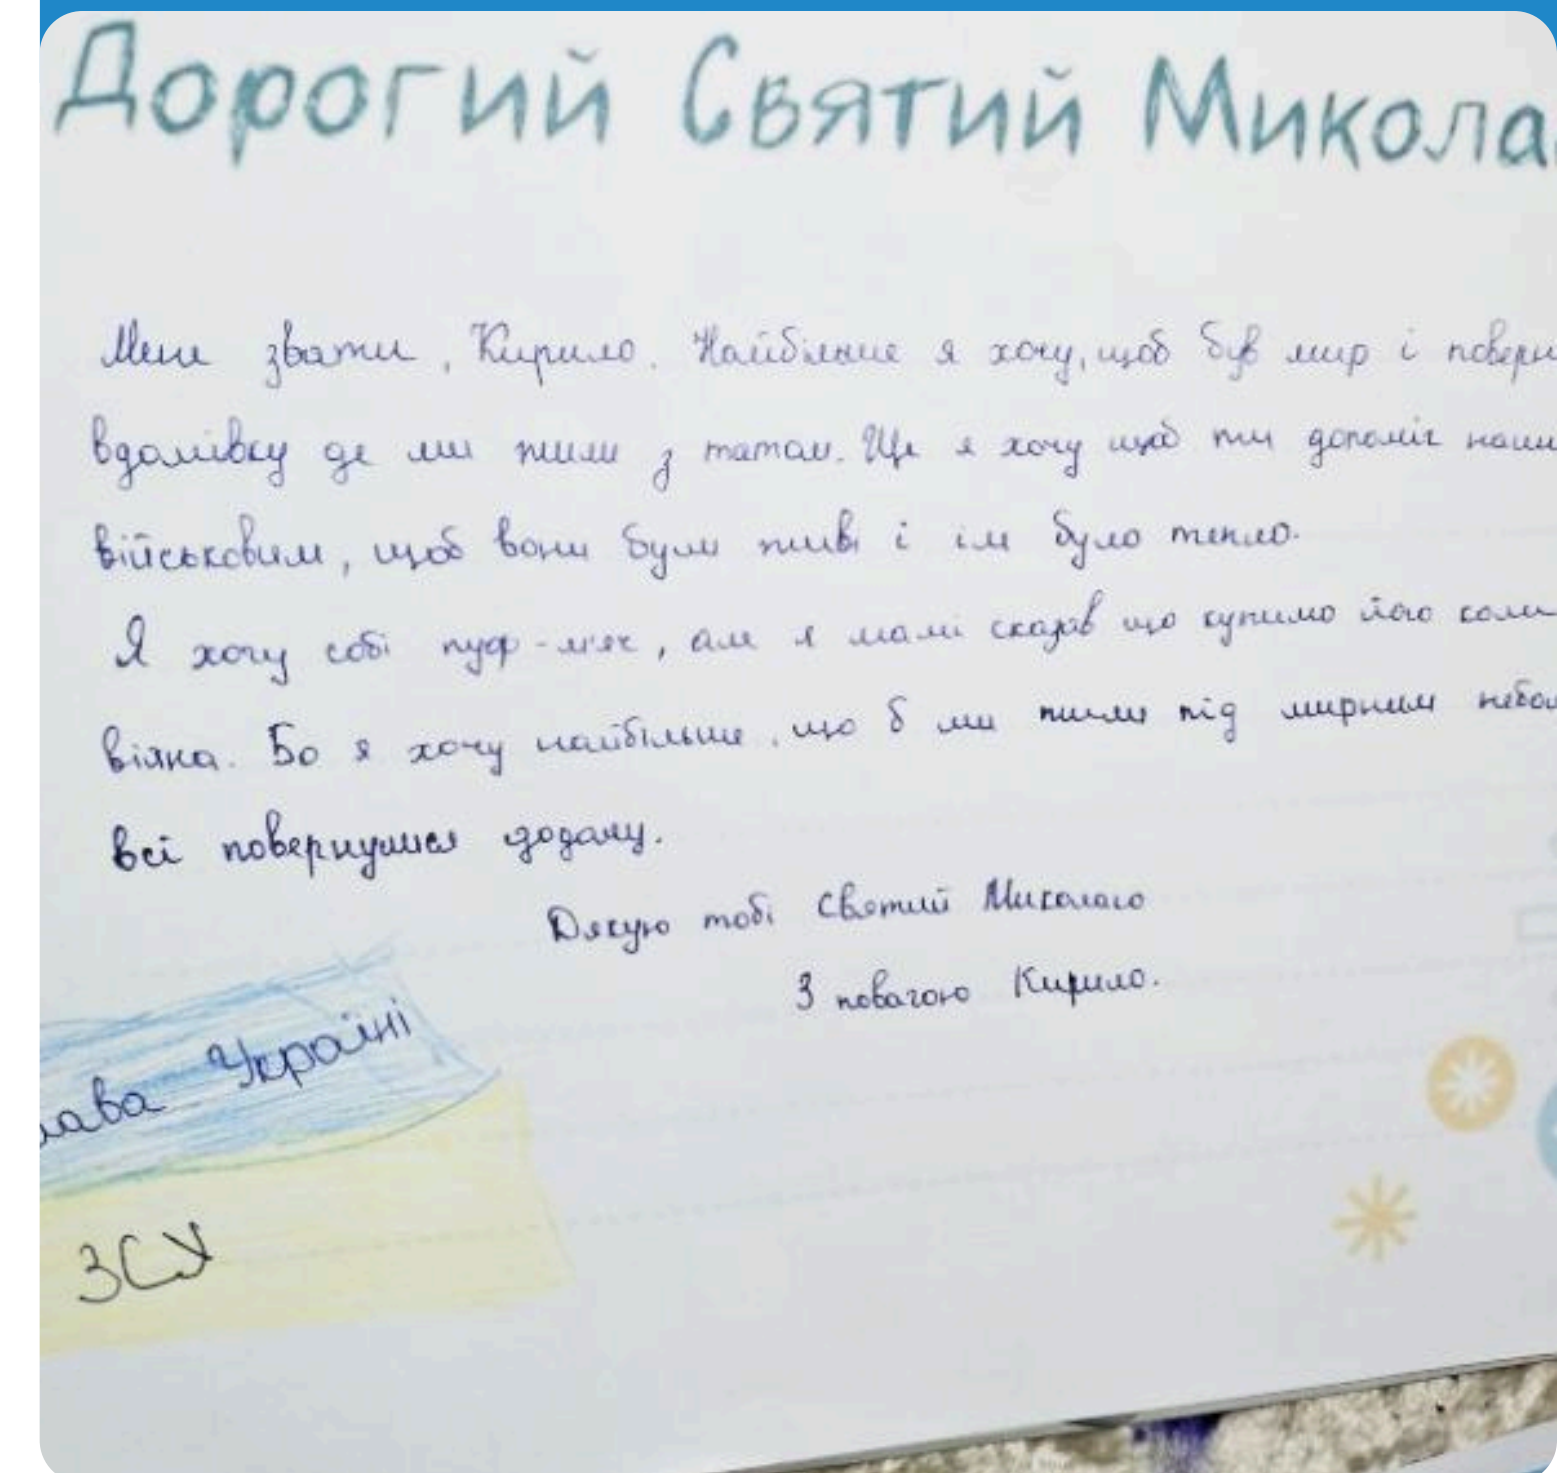 Дорогий Святий Микола
Мене звати, Кирило. Найбільше я хочу, щоб був мир і поверн
вдомівку де ми жили з татом. Ще я хочу щоб ти допоміг наши
військовим, щоб вони були живі і їм було тепло.
Я хочу собі пуф-м'яч, але я мамі сказав що купимо його коли
війна. Бо я хочу найбільше, що б ми жили під мирним небом
всі повернулися додому.
Дякую тобі Святий Миколаю
З повагою Кирило.
лава Україні
ЗСУ